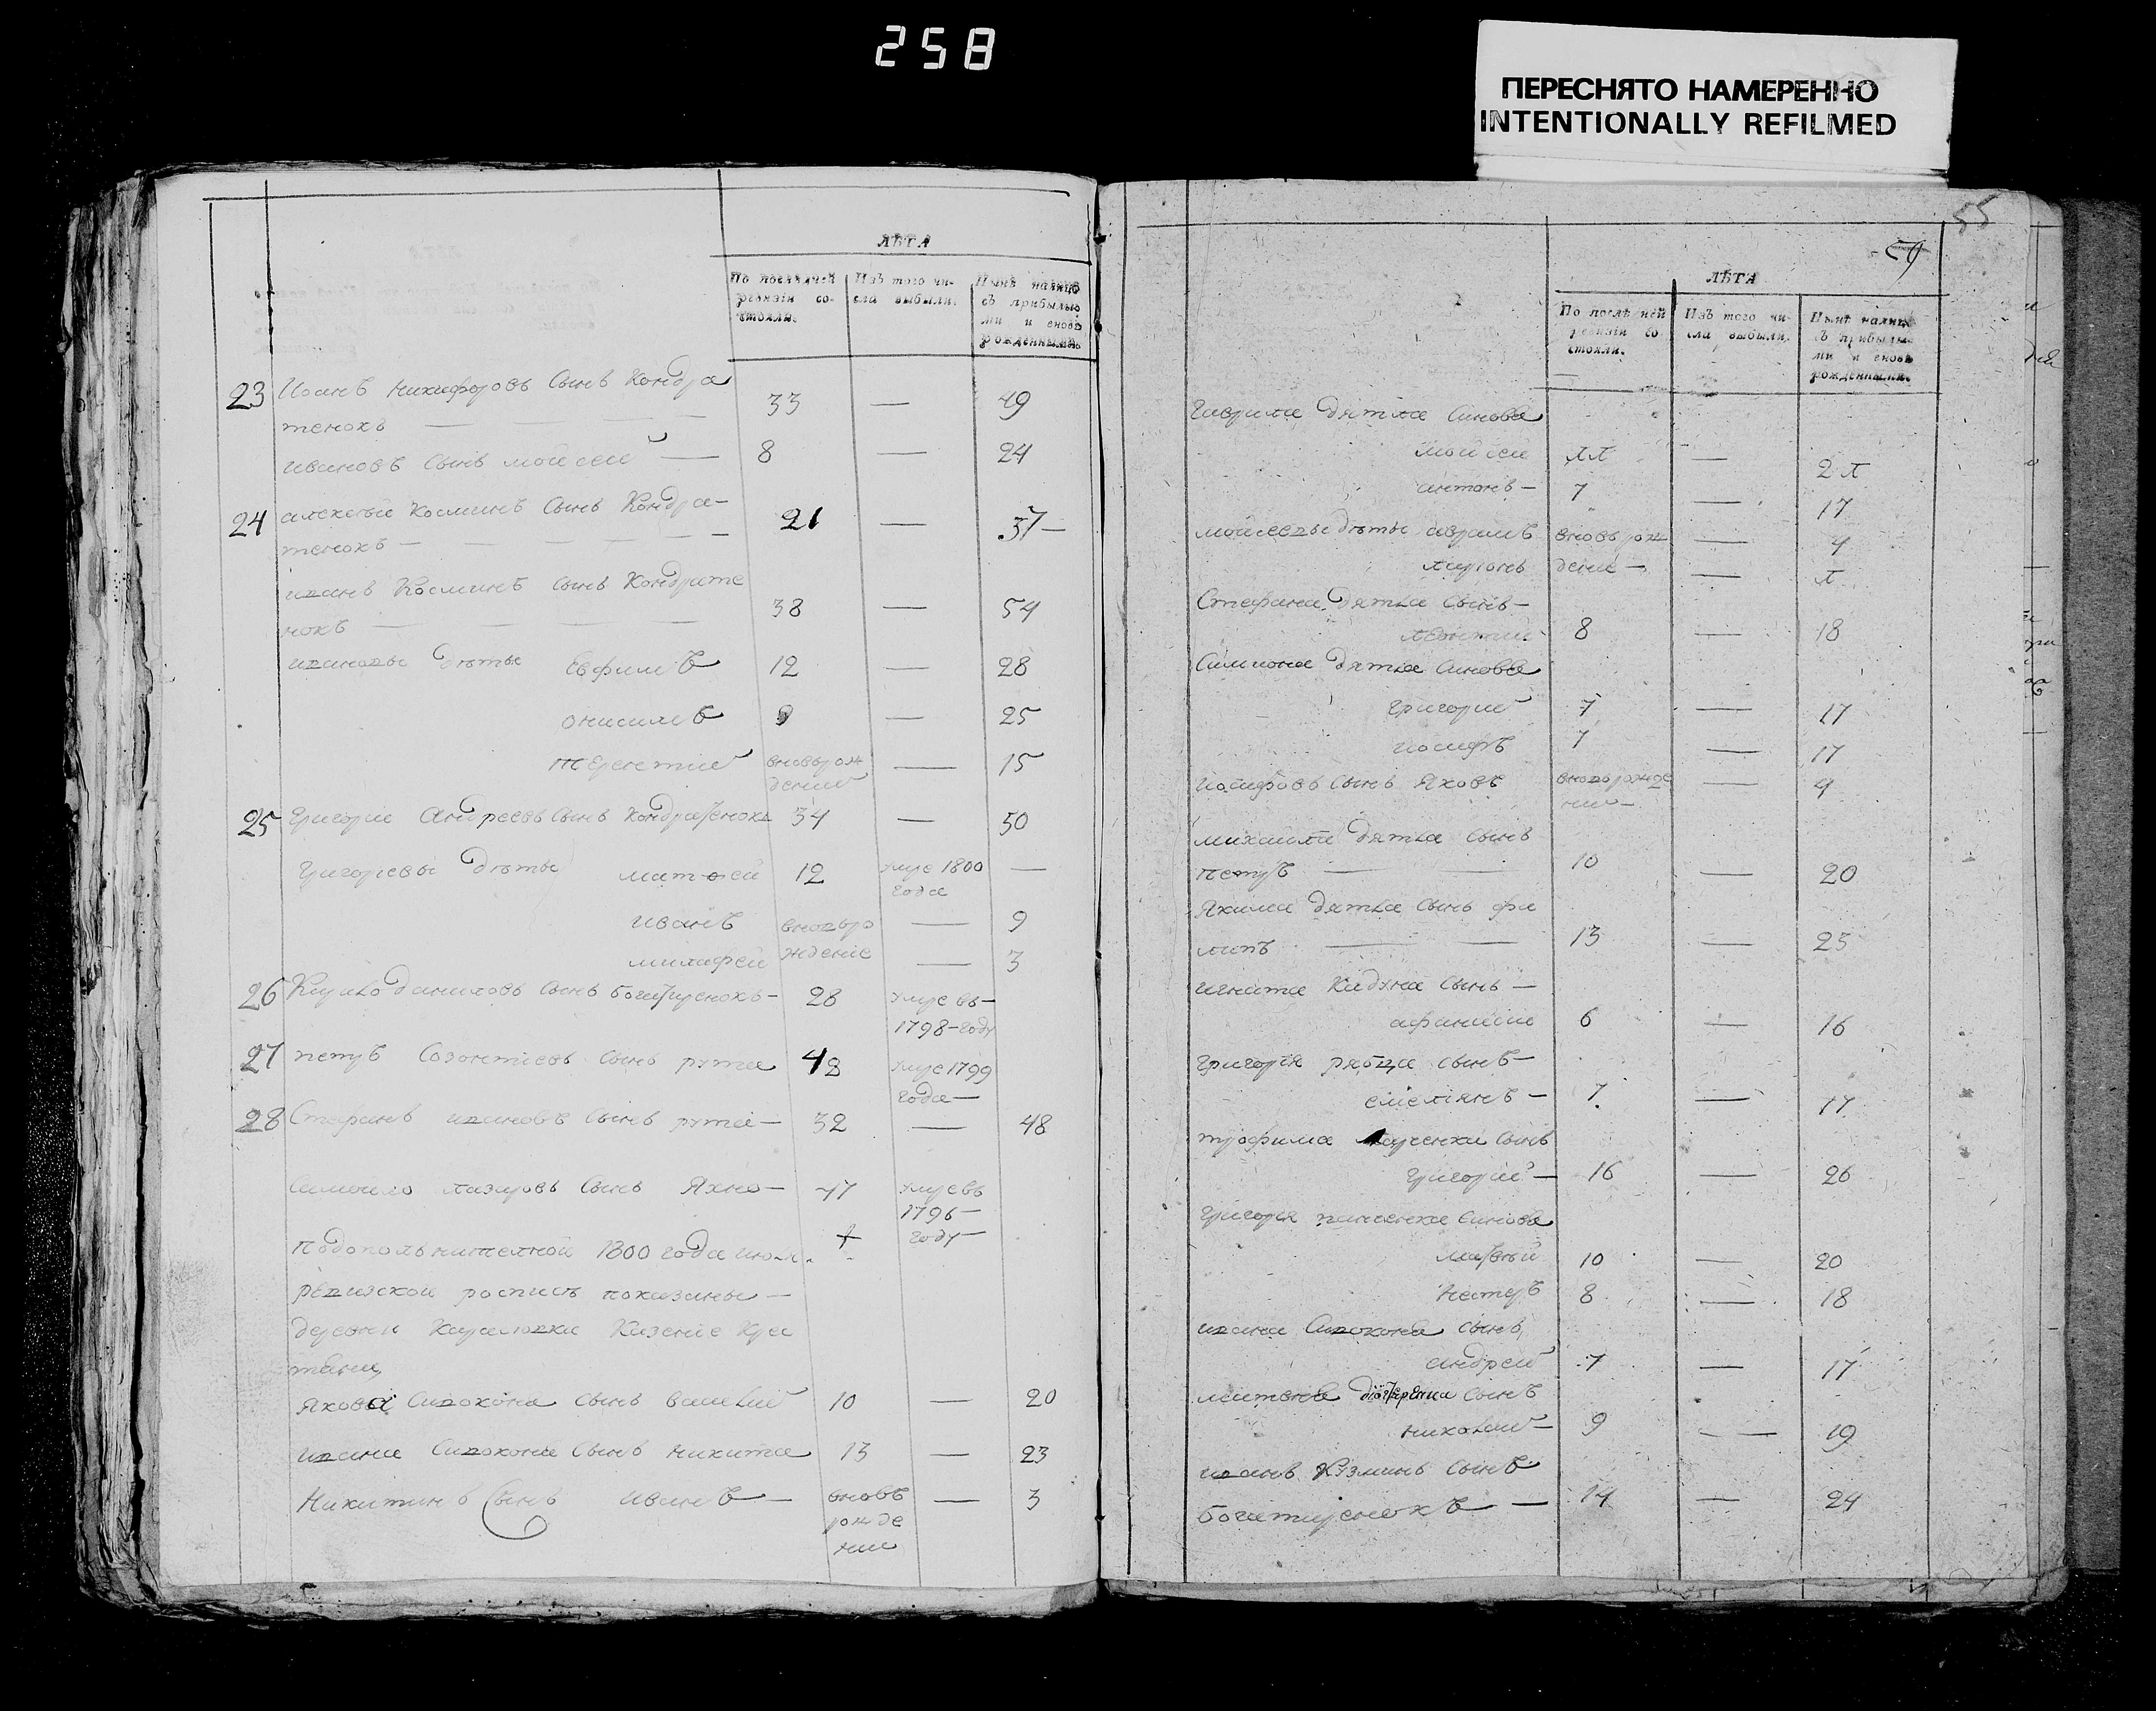 258
ПЕРЕСНЯТО НАМЕРЕННО
INTENTIONALLY REFILMED
ЛѢТА
По послѣдней ревизіи состояли.
Изъ того числа выбыли.
Нынѣ налицо съ прибылыми и вновь рожденными.
23 Иоанъ Никифоровъ сынъ Кондра
тенокъ — 33 — 49
ивановъ сынъ мойсей — 8 — 24
24 алексѣй Косминъ сынъ Кондра-
тенокъ — 21 — 37 —
иванъ Косминъ сынъ Кондрате
нокъ — 38 — 54
ивановы дѣты Евфимъ 12 — 28
онисимъ 9 — 25
терентий вновьрож — 15
дение
25 Григорие Андреевъ сынъ Кондратенокъ 34 — 50
Григориевы дѣты матфей 12 умре 1800 —
года
иванъ вновьро — 9
ждение — 3
26 Даниловъ сынъ 28 умре въ —
1798 — году
27 петръ Созонтиевъ сынъ рута 42 умре 1799
года —
28 Стефанъ ивановъ сынъ рута — 32 — 48
Самойло лазаровъ сынъ Яхно — 47 умре въ
1796 —
году —
подополънителной 1800 года июля
ревизской росписѣ показаны —
деревни Казение Кре
Якова Сивоконя сынъ василий 10 — 20
ивана Сивоконя сынъ никита 13 — 23
Никитинъ сынъ иванъ — вновъ — 3
рожде
ние
55
ЛѢТА
По послѣдней ревизіи состояли.
Изъ того числа выбыли.
Нынѣ налицо съ прибылыми и вновь рожденными.
Гаврила дятла синове
мойсей 11 — 21
антонъ — 7 — 17
мойсеевы дѣты аврамъ вновь рож — 4
ларионъ дение — — 1
Стефана дятла сынъ —
леонтий 8 — 18
Симиона дятла синове
григорие 7 — 17
иосифъ 7 — 17
иосифовъ сынъ Яковъ вноворожде — 4
ние —
михаила дятла сынъ
петръ — 10 — 20
Якима дятла сынъ фи
липъ — 13 — 23
игната сынъ —
афанасий 6 — 16
григория рябца сынъ —
емелянъ — 7 — 17
трофима сынъ
григорие — 16 — 26
григория панченка синове
матвѣй 10 — 20
Нестеръ 8 — 18
ивана Сивоконя сынъ
андрей 7 — 17
сынъ
николай — 9 — 19
иванъ Кузминъ сынъ
богатиренокъ — 14 — 24